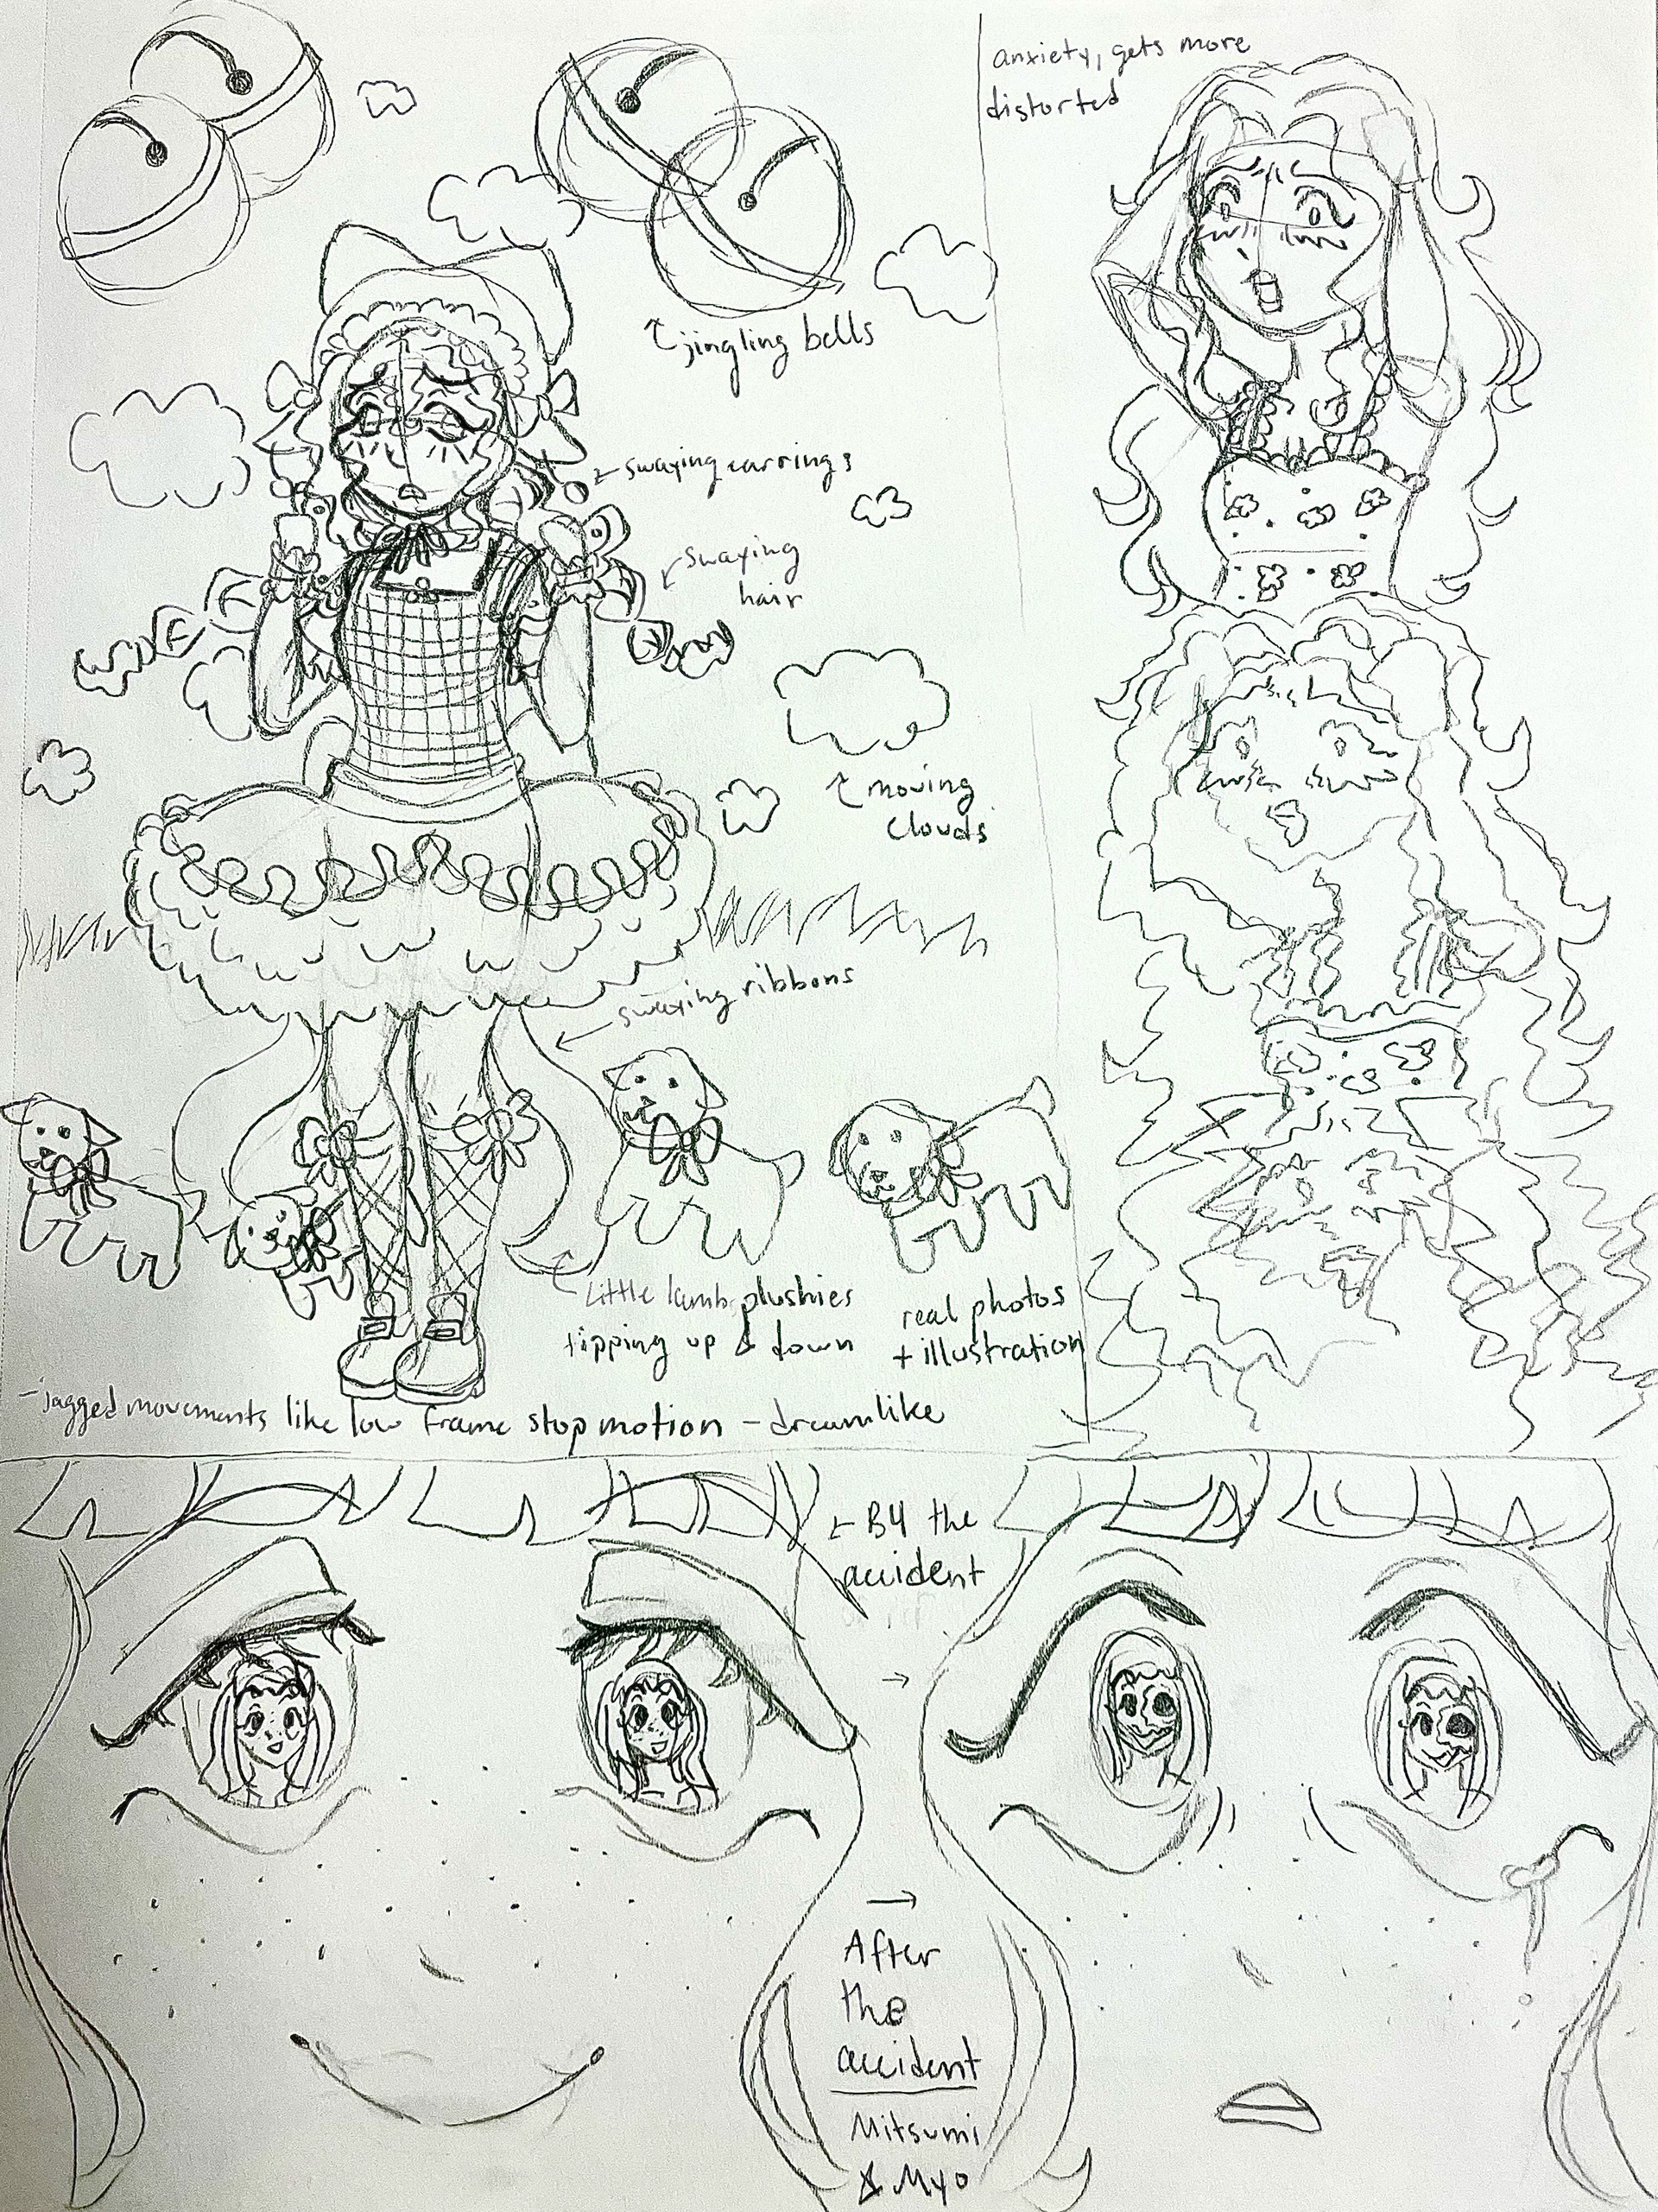 anxiety, gets more
distorted
jingling bells
swaying earrings
swaying
hair
moving
clouds
swaying ribbons
little lamb plushies
tipping up & down
real photos
+ illustration
- jagged movements like low frame stop motion - dreamlike
B4 the
accident
After
the
accident
Mitsumi
& Myo